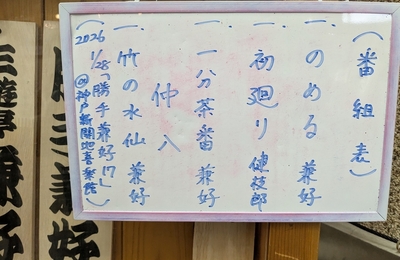 (番組表)
一、のめる 兼好
一、初廻り 健枝郎
一、一分茶番 兼好
仲入
一、竹の水仙 兼好
(2026 1/28「勝手兼好17」@神戸新開地喜楽館)
三遊亭兼好
勝三 兼好